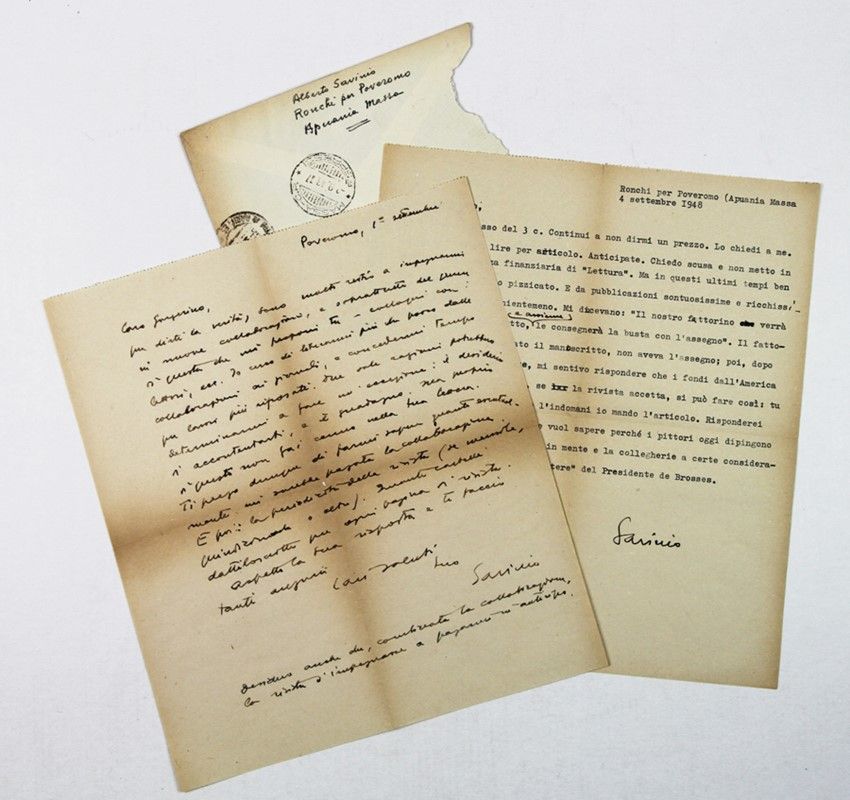 Alberto Savinio
Ronchi per Poveromo
Apuania Massa
Poveromo, 1° settembre
Caro
per dirti la verità, sono molto restio a impegnarmi
in nuove collaborazioni, e soprattutto del genere
di questa che mi proponi tu – colloqui con i
lettori, ecc. Io cerco di liberarmi più che posso dalle
collaborazioni ai giornali, e concedermi tempo
per lavori più riposati. Due sole ragioni potrebbero
determinarmi a fare un'eccezione: il desiderio
di accontentarti, e il guadagno. Ma proprio
di questo non fai cenno nella tua lettera.
Ti prego dunque di farmi sapere quanto
mente mi sarebbe pagata la collaborazione
E poi: la periodicità della rivista (se mensile,
quindicinale o altro). Quante cartelle
dattiloscritte per ogni pagina di rivista.
Aspetto la tua risposta e ti faccio
tanti auguri
Cari saluti
tuo
Savinio
Desidero anche che, combinata la collaborazione,
la rivista s'impegnasse a pagarmi in anticipo.
Ronchi per Poveromo (Apuania Massa
4 settembre 1948
sso del 3 c. Continui a non dirmi un prezzo. Lo chiedi a me.
lire per articolo. Anticipate. Chiedo scusa e non metto in
za finanziaria di "Lettura". Ma in questi ultimi tempi ben
o pizzicato. E da pubblicazioni sontuosissime e ricchiss'
nientemeno. Mi dicevano: "Il nostro fattorino verrà
tto, le consegnerà la busta con l'assegno". Il fatto-
ato il manoscritto, non aveva l'assegno; poi, dopo
, mi sentivo rispondere che i fondi dall'America
, se la rivista accetta, si può fare così: tu
l'indomani io mando l'articolo. Risponderei
e vuol sapere perché i pittori oggi dipingono
in mente e la collegherie a certe considera-
tere" del Presidente de Brosses.
Savinio